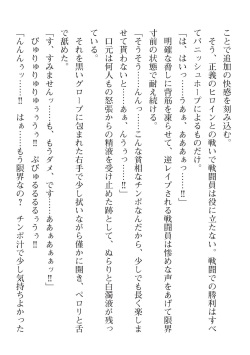 ことで追加の快感を刻み込む。
そう、正義のヒロインとの戦いで戦闘員は役に立たない。戦闘での勝利はすべ
てバニッシュホープによるものだけ。
「は、はいっ……うぁぁ、あぁぁ……‼」
明確な脅しに背筋を凍らせて、逆レイプされる戦闘員は惨めな声をあげて限界
寸前の状態で耐え続ける。
「そうそう……んんっ、こんな早漏チンポなんだから、少しでも長く楽しま
せて貰わないと……あぁ、んうぅっ……‼」
口元は何人もの怒張からの精液を受け止めた跡として、ぬらりと白濁液が残っ
ている。
それを黒いグローブに包まれた右手で少し拭いながら僅かに開き、ペロリと舌
で舐めた。
「す、すみませんっ……も、もうダメ、です……ああぁあぁぁっ‼」
びゅりゅりゅりゅううぅぅ‼　ぶびゅるるるるぅぅぅ‼
「んんんぅっ……‼　はぁ……もう限界なの？　チンポ汁で少し気持ちよかった